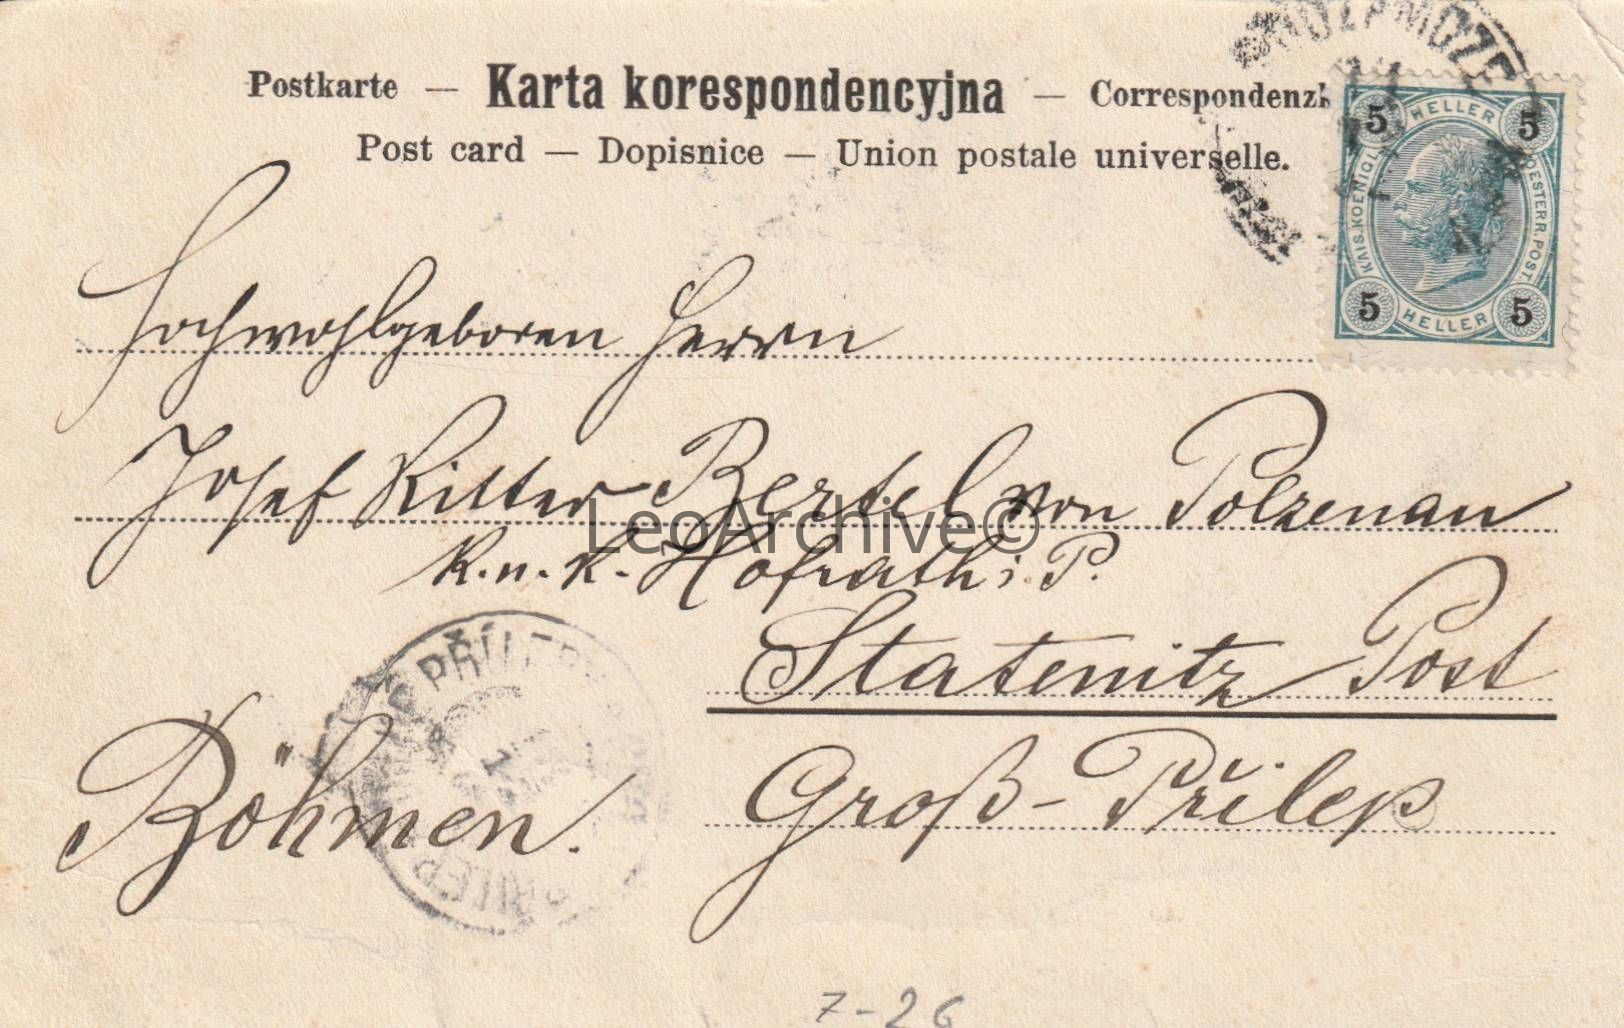 Postkarte — Karta korespondencyjna — Correspondenzk
Post card — Dopisnice — Union postale universelle.
5 HELLER 5
KAIS. KOENIGL. OESTERR. POST.
5 HELLER 5
Hochwohlgeboren Herrn
Josef Ritter Bertel von Polzenau
k. u. k. Hofrath i. P.
Statenitz Post
Groß-Přilep
Böhmen.
LeoArchive©
7-26